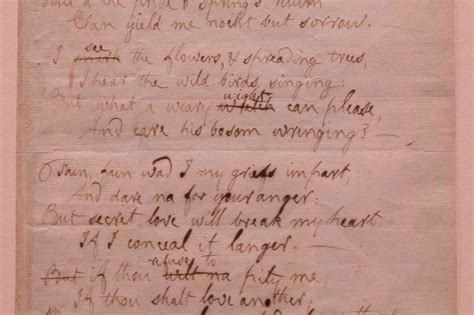 the pride o' spring's return
Can yield me nocht but sorrow.
see
I the flowers, & spreading trees,
I hear the wild birds singing;
wight
But what a weary can please,
And care his bosom wringing? —
Fain, fain wad I my griefs impart,
And dare na for your anger;
But secret love will break my heart,
If I conceal it langer. —
refuse to
But if thou will na pity me,
If thou shalt love another;